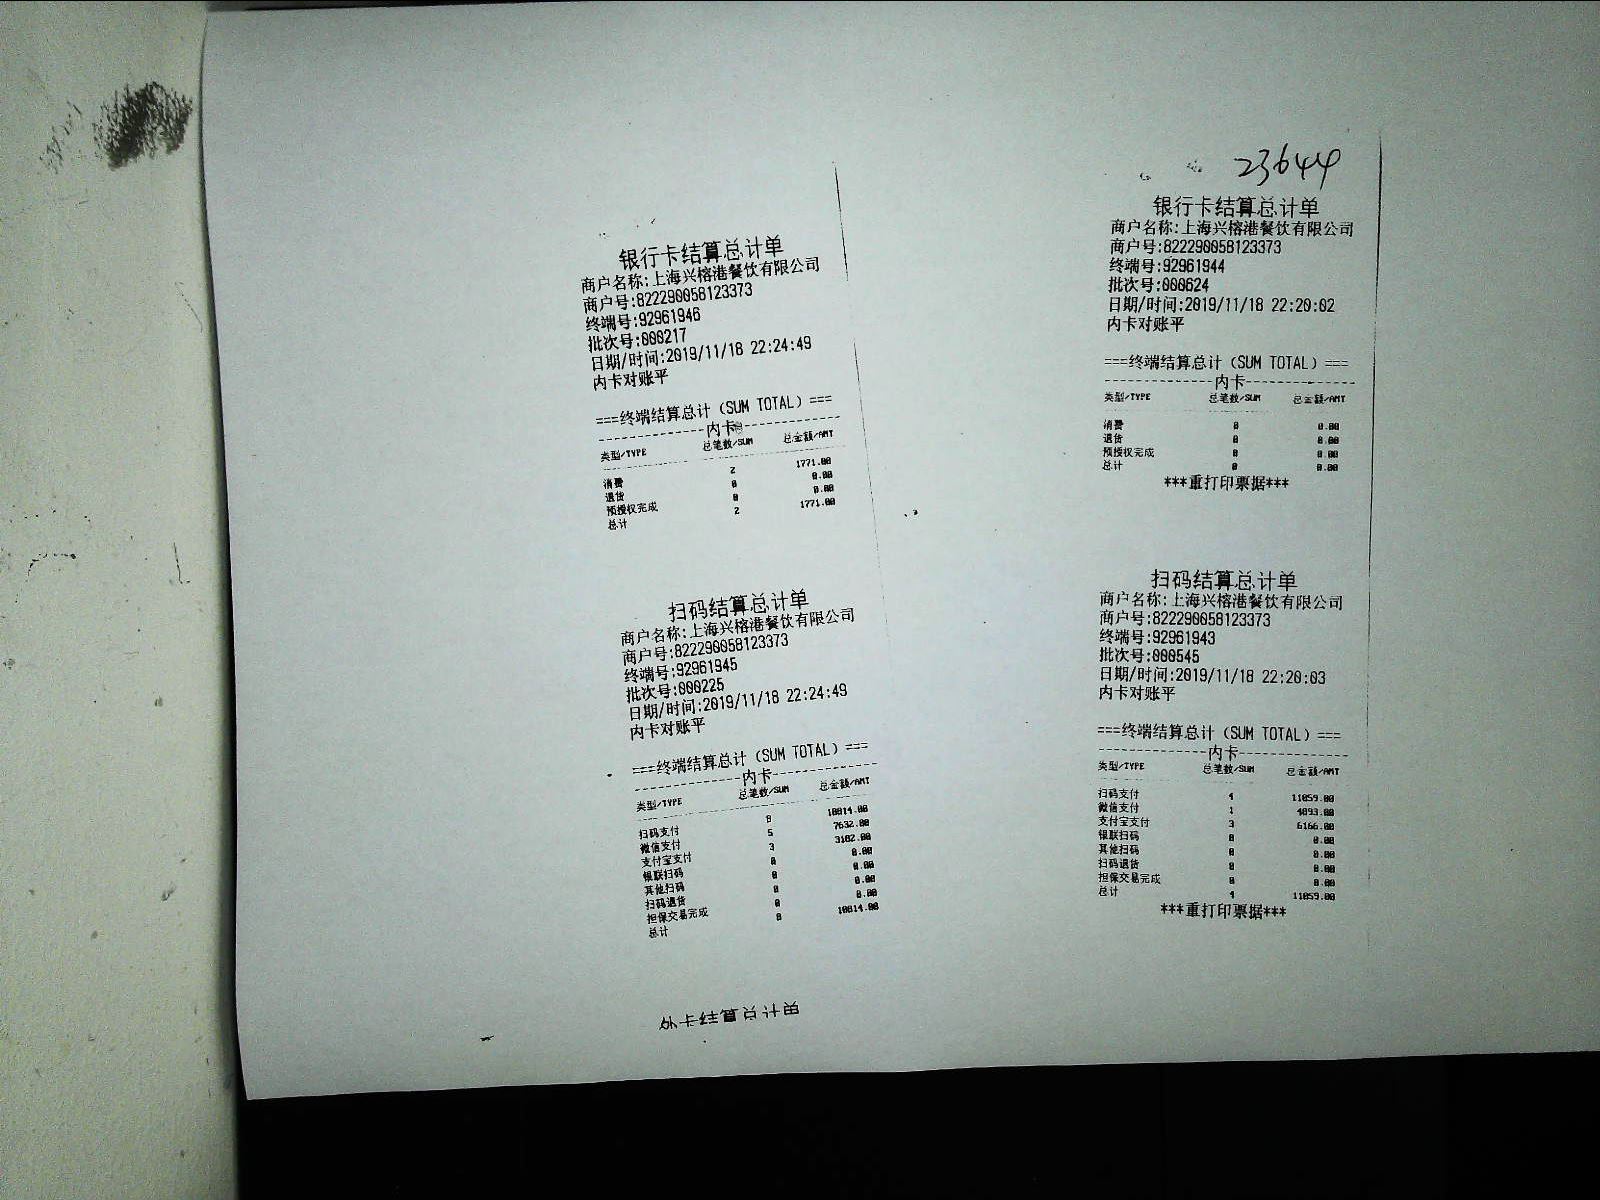 银行卡结算总计单
商户名称:上海兴榕港餐饮有限公司
商户号:822290058123373
终端号:92961946
批次号:000217
日期/时间:2019/11/18 22:24:49
内卡对账平
===终端结算总计（SUM TOTAL）===
内卡
类型/TYPE 总笔数/SUM 总金额/AMT
消费 2 1771.00
退货 0 0.00
预授权完成 0 0.00
总计 2 1771.00
扫码结算总计单
商户名称:上海兴榕港餐饮有限公司
商户号:822290058123373
终端号:92961945
批次号:000225
日期/时间:2019/11/18 22:24:49
内卡对账平
===终端结算总计（SUM TOTAL）===
内卡
类型/TYPE 总笔数/SUM 总金额/AMT
扫码支付 8 10814.00
微信支付 5 7632.00
支付宝支付 3 3182.00
银联扫码 0 0.00
其他扫码 0 0.00
扫码退货 0 0.00
担保交易完成 0 0.00
总计 8 10814.00
外卡结算总计单
23644
银行卡结算总计单
商户名称:上海兴榕港餐饮有限公司
商户号:822290058123373
终端号:92961944
批次号:000624
日期/时间:2019/11/18 22:20:02
内卡对账平
===终端结算总计（SUM TOTAL）===
内卡
类型/TYPE 总笔数/SUM 总金额/AMT
消费 0 0.00
退货 0 0.00
预授权完成 0 0.00
总计 0 0.00
***重打印票据***
扫码结算总计单
商户名称:上海兴榕港餐饮有限公司
商户号:822290058123373
终端号:92961943
批次号:000545
日期/时间:2019/11/18 22:20:03
内卡对账平
===终端结算总计（SUM TOTAL）===
内卡
类型/TYPE 总笔数/SUM 总金额/AMT
扫码支付 4 11059.00
微信支付 1 4893.00
支付宝支付 3 6166.00
银联扫码 0 0.00
其他扫码 0 0.00
扫码退货 0 0.00
担保交易完成 0 0.00
总计 4 11059.00
***重打印票据***